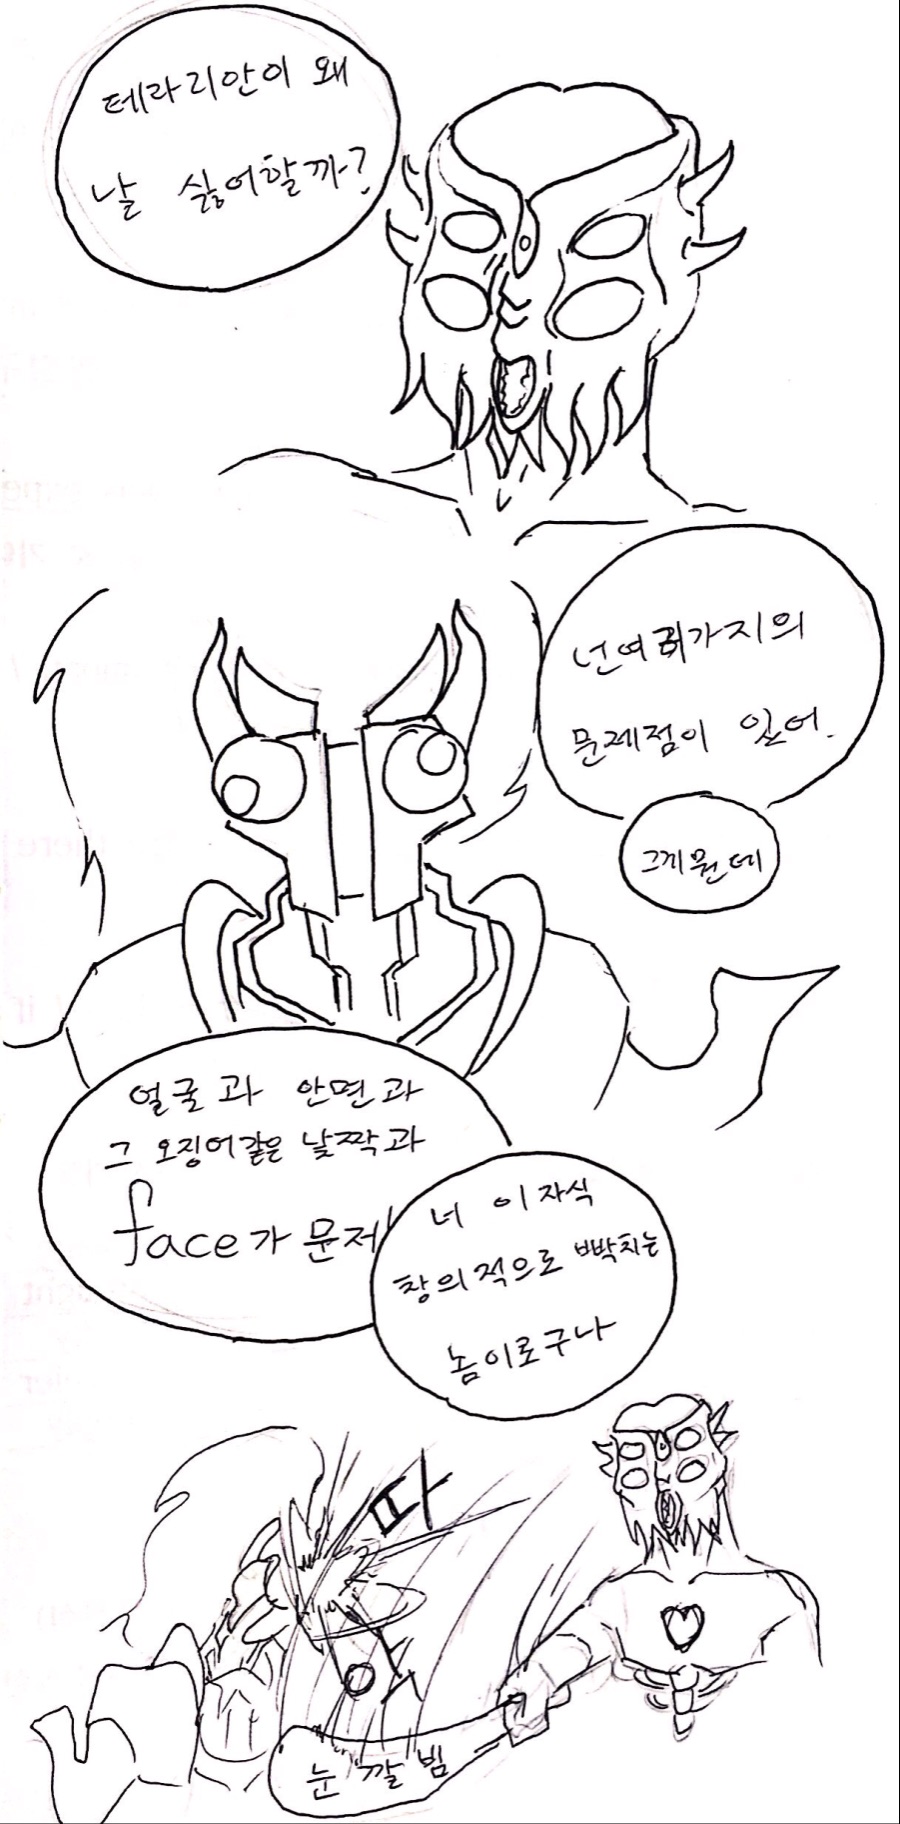 테라리안이 왜
날 싫어할까?
넌여러가지의
문제점이 있어.
그게뭔데
얼굴과 안면과
그 오징어같은 낯짝과
face가 문제
너 이 자식
창의적으로 빡치는
놈이로구나
퍽
눈깔빔